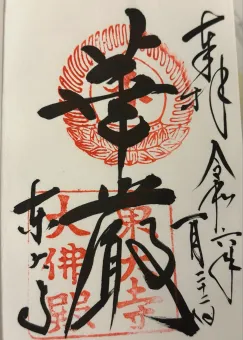 奉拝 令和六年
一月二十二日
華厳
東大寺
東大寺
大佛殿